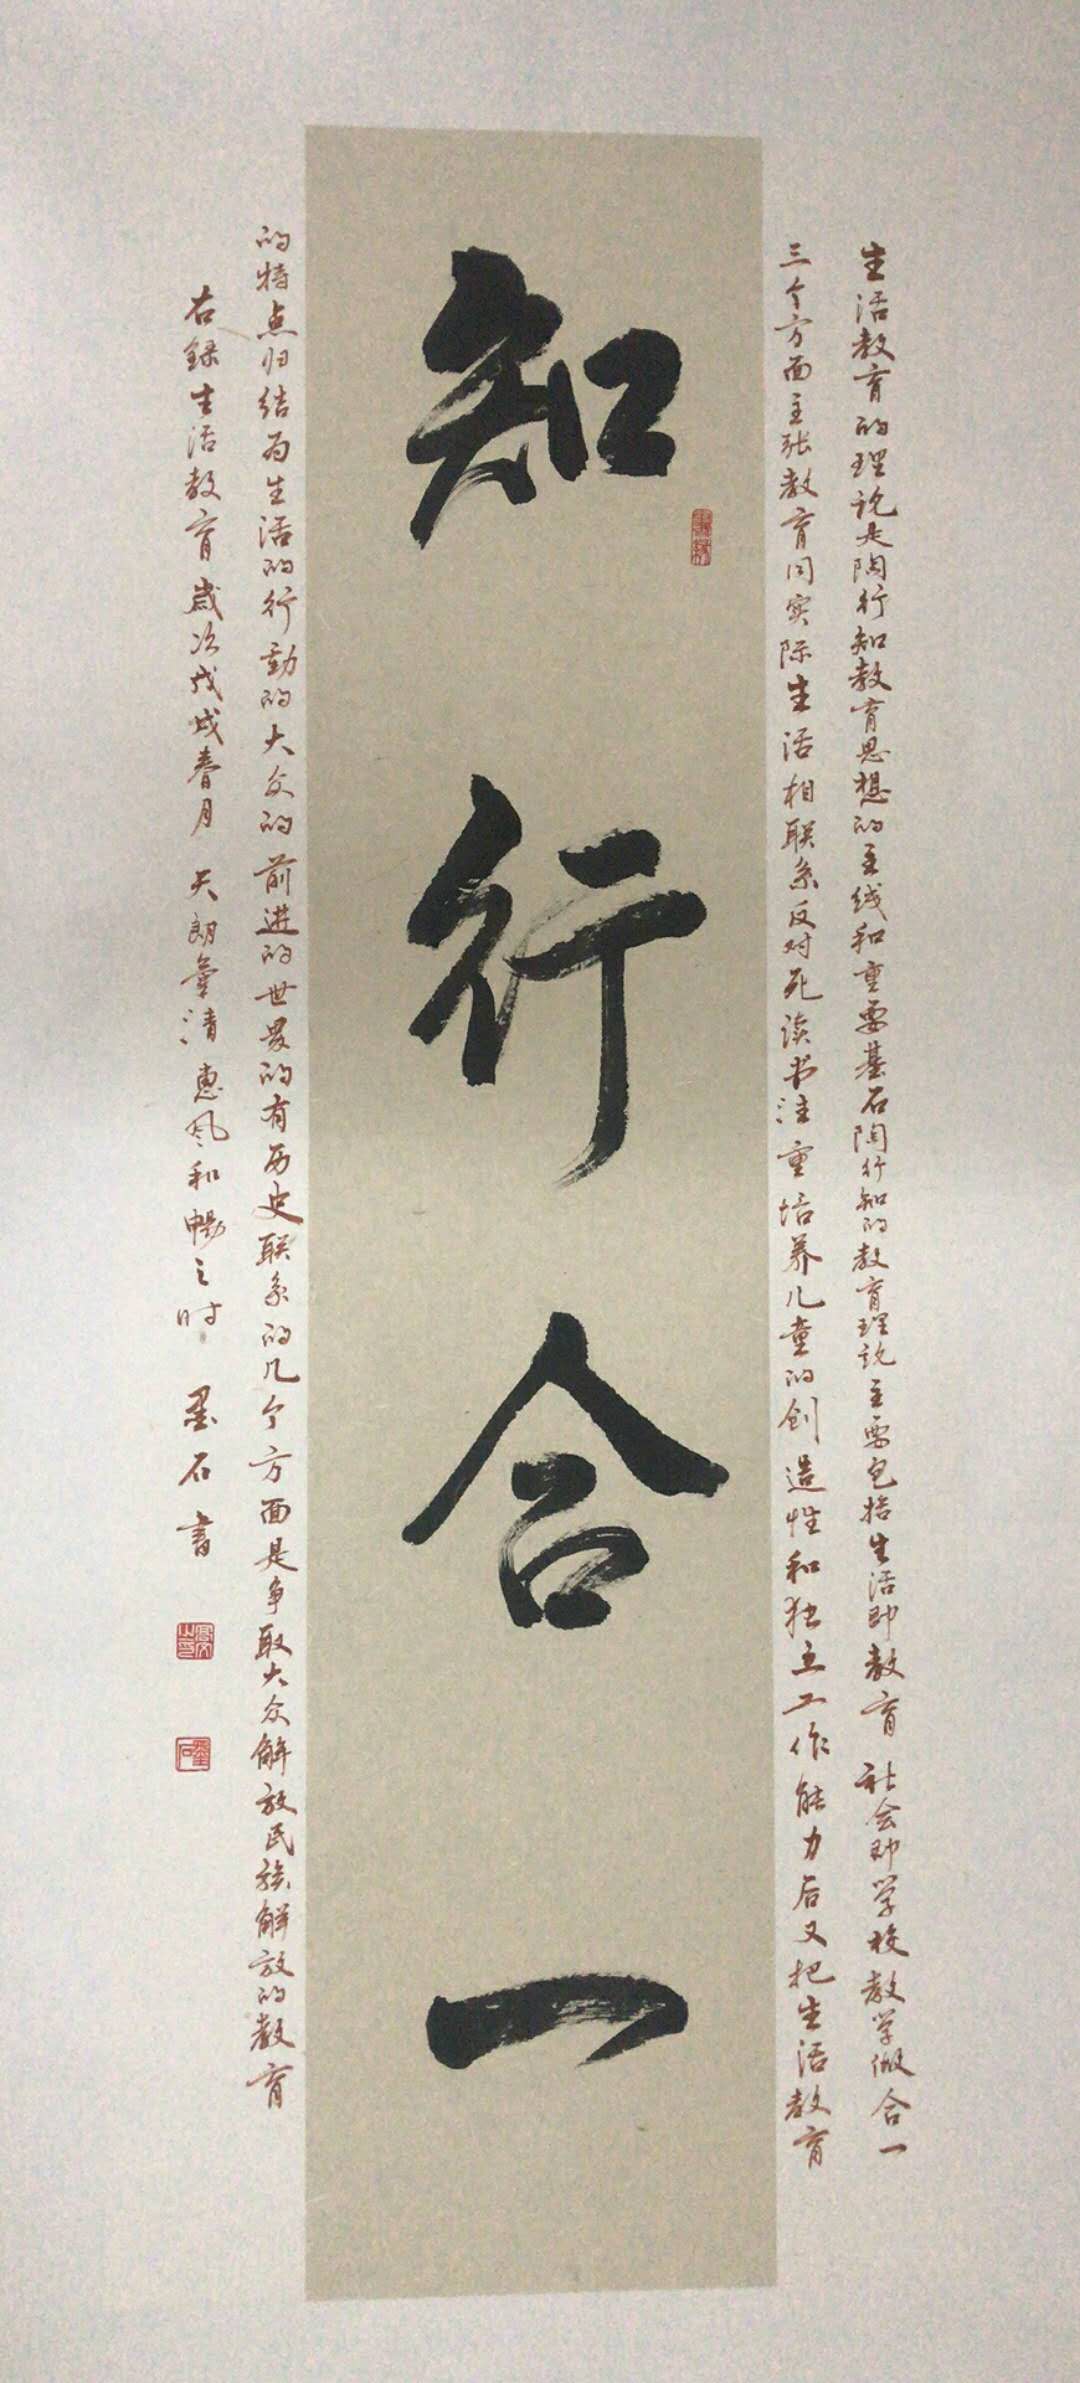 生活教育的理论是陶行知教育思想的主线和重要基石陶行知的教育理论主要包括生活即教育社会即学校教学做合一
三个方面主张教育同实际生活相联系反对死读书注重培养儿童的创造性和独立工作能力后又把生活教育
知行合一
的特点归结为生活的行動的大众的前进的世界的有历史联系的几个方面是争取大众解放民族解放的教育
右録生活教育歲次戊戌春月天朗氣清惠风和暢之时墨石書